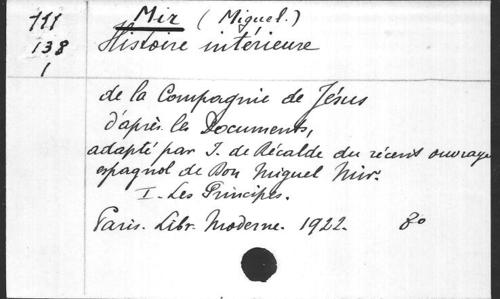 711 Mir (Miguel.)
138 Histoire intérieure
1
de la Compagnie de Jésus
d'après les Documents,
adapté par I. de Récalde du récent ouvrage
espagnol de Don Miguel Mir.
I. Les Principes.
Paris. Libr. Moderne. 1922. 8o